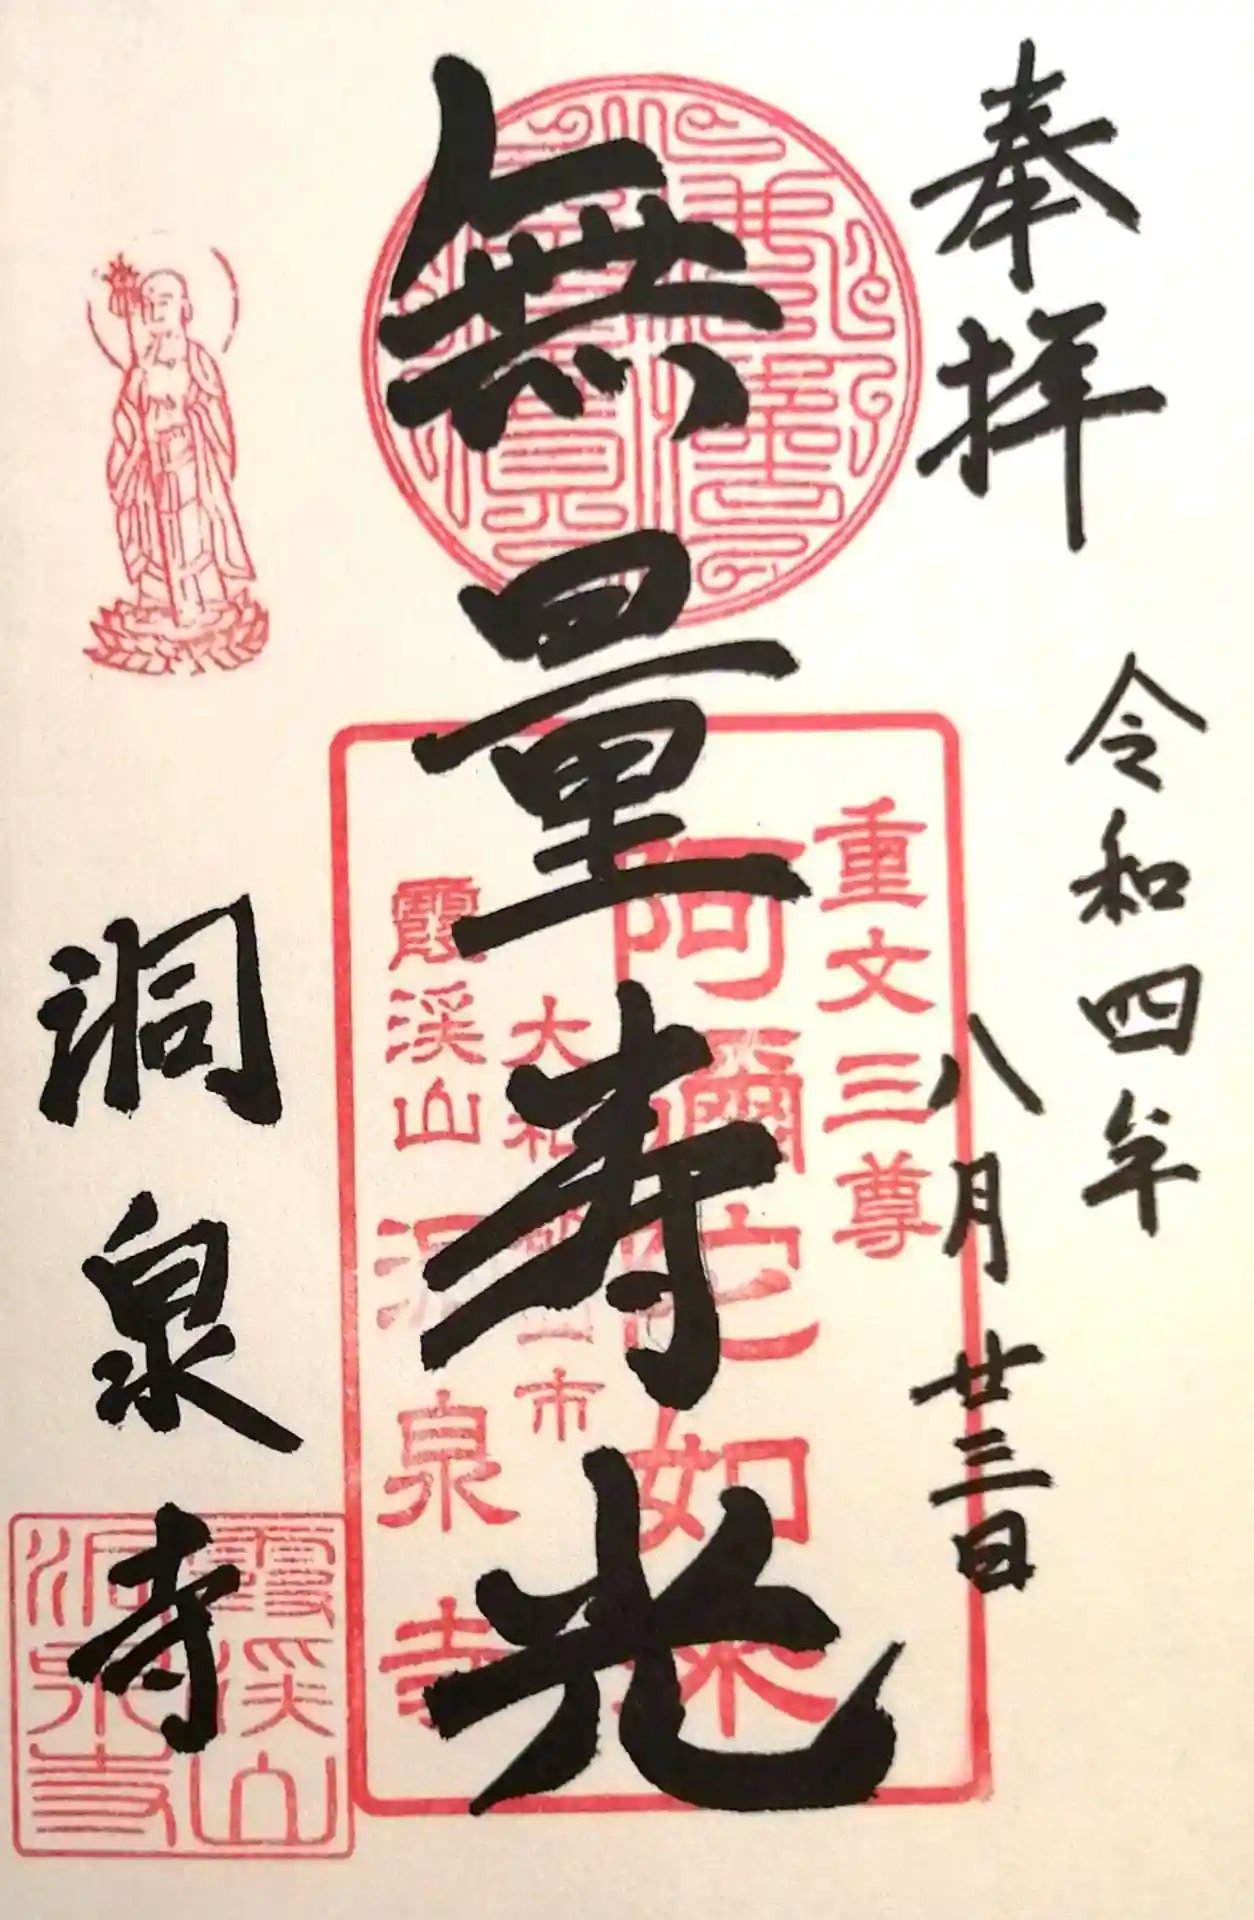 奉拝
令和四年
八月廿三日
無量寿光
重文三尊
阿彌陀如来
大和郡山市
霞渓山
洞泉寺
洞泉寺
霞渓山
洞泉寺